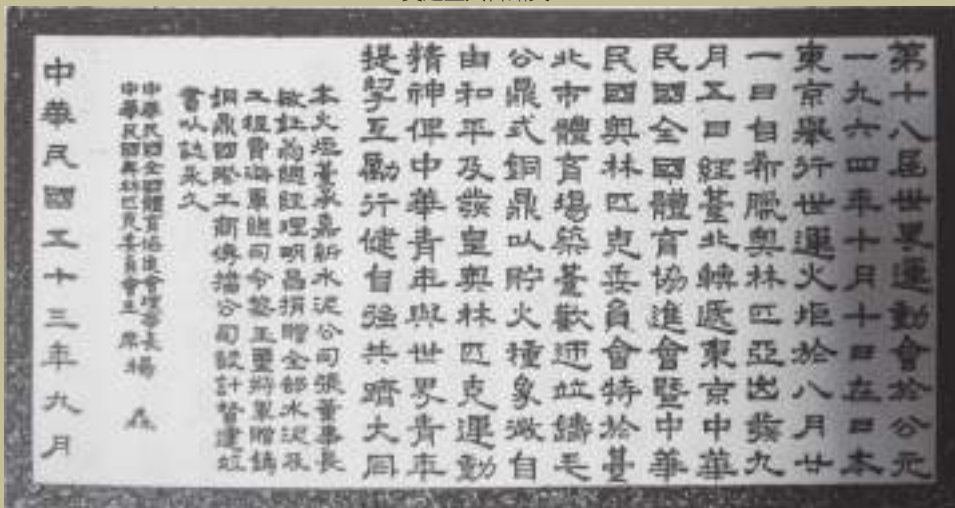 第十八屆世界運動會於公元
一九六四年十月十日在日本
東京舉行世運火炬於八月廿
一日自希臘奧林匹亞出發九
月五日經臺北轉遞東京中華
民國全國體育協進會暨中華
民國奧林匹克委員會特於臺
北市體育場築臺歡迎並鑄毛
公鼎式銅鼎以貯火種象徵自
由和平及發皇奧林匹克運動
精神俾中華青年與世界青年
提挈互勵行健自強共躋大同
本火炬臺承嘉新水泥公司張董事長
敏鈺翁總經理明昌捐贈全部水泥及
工程費海軍總司令黎玉璽將軍贈鑄
銅鼎國際工商傳播公司設計督建竝
書以誌永久
中華民國全國體育協進會理事長楊森
中華民國奧林匹克委員會主席
中華民國五十三年九月